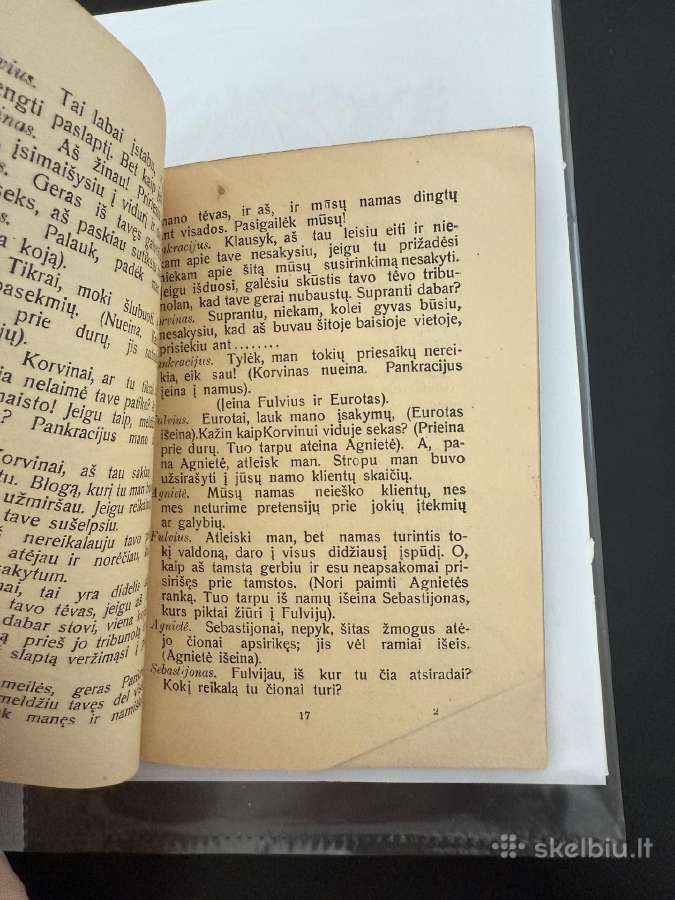 vius. Tai labai įstabu,
engti paslaptį. Bet kaip
inas. Aš žinau!
įsimaišysiu į viduri ir
s. Geras iš tavęs
seks, aš paskiau
s. Palauk, padėk
a koją).
Tikrai, moki šlubuoti.
pasekmių. (Nueina,
prie durų, jis
į).
Korvinai, ar tu
ia nelaimė tave patiko?
maisto! Jeigu taip,
? Pankracijus mano
Korvinai, aš tau sakiau,
tu. Blogą, kurį tu man
užmiršau. Jeigu
tave sušelpsiu.
nereikalauju tavo
atėjau ir norėčiau,
sakytum.
nai, tai yra didelis
tavo tėvas, jeigu aš
dabar stovi, viena
ą prieš jo tribunolą
slaptą veržimąsi į
meilės, geras
meldžiu tavęs dėl
k manęs ir
mano tėvas, ir aš, ir mūsų namas dingtų
ant visados. Pasigailėk mūsų!
nkracijus. Klausyk, aš tau leisiu eiti ir nie-
kam apie tave nesakysiu, jeigu tu prižadėsi
niekam apie šitą mūsų susirinkimą nesakyti.
Jeigu išduosi, galėsiu skūstis tavo tėvo tribu-
nolan, kad tave gerai nubaustų. Supranti dabar?
orvinas. Suprantu, niekam, kolei gyvas būsiu,
nesakysiu, kad aš buvau šitoje baisioje vietoje,
prisiekiu ant ........
ankracijus. Tylėk, man tokių priesaikų nerei-
kia, eik sau! (Korvinas nueina. Pankracijus
įeina į namus).
(Įeina Fulvius ir Eurotas).
Fulvius. Eurotai, lauk mano įsakymų, (Eurotas
išeina).Kažin kaip Korvinui viduje sekas? (Prieina
prie durų. Tuo tarpu ateina Agnietė). A, pa-
na Agnietė, atleisk man. Stropu man buvo
užsirašyti į jūsų namo klientų skaičių.
Agnietė. Mūsų namas neieško klientų, nes
mes neturime pretensijų prie jokių įtekmių
ar galybių.
Fulvius. Atleiski man, bet namas turintis to-
kį valdoną, daro į visus didžiausį įspūdį. O,
kaip aš tamstą gerbiu ir esu neapsakomai pri-
sirišęs prie tamstos. (Nori paimti Agnietės
ranką. Tuo tarpu iš namų išeina Sebastijonas,
kurs piktai žiūri į Fulvijų).
Agnietė. Sebastijonai, nepyk, šitas žmogus atė-
jo čionai apsirikęs; jis vėl ramiai išeis.
(Agnietė išeina).
Sebastijonas. Fulvijau, iš kur tu čia atsiradai?
Kokį reikalą tu čionai turi?
17 2
skelbiu.lt